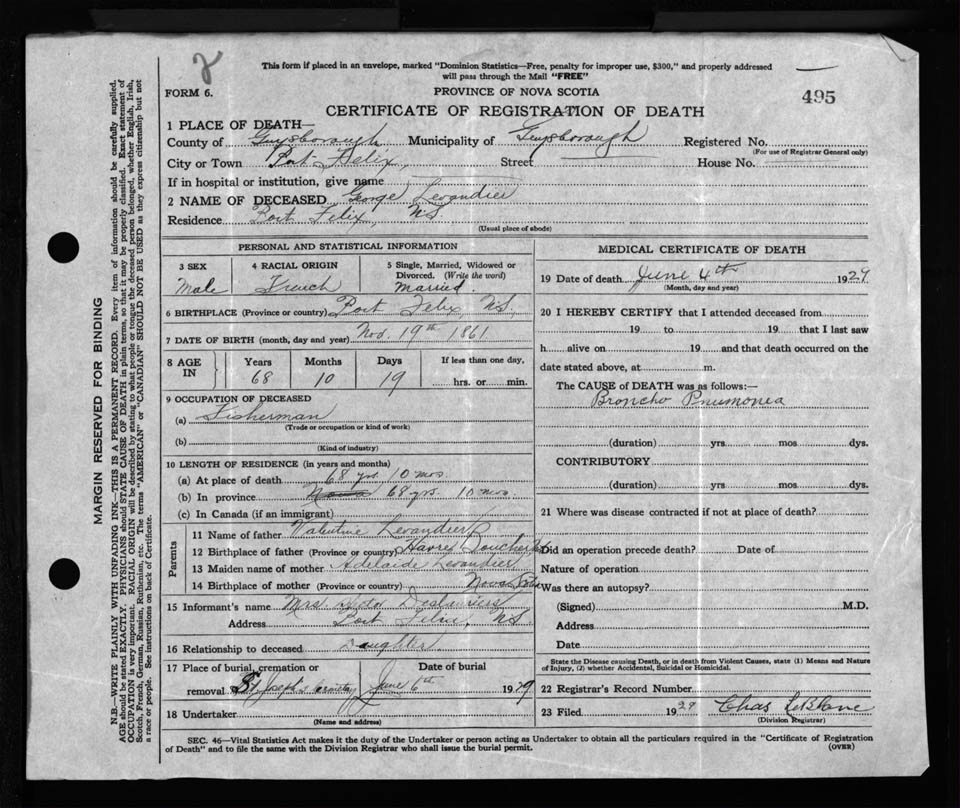 2
This form if placed in an envelope, marked "Dominion Statistics—Free, penalty for improper use, $300," and properly addressed
will pass through the Mail "FREE"
FORM 6.
PROVINCE OF NOVA SCOTIA
495
CERTIFICATE OF REGISTRATION OF DEATH
1 PLACE OF DEATH—
County of Guysborough Municipality of Guysborough Registered No.
(For use of Registrar General only)
City or Town Port Felix, Street House No.
If in hospital or institution, give name
2 NAME OF DECEASED George Levandier
Residence Port Felix, NS
(Usual place of abode)
PERSONAL AND STATISTICAL INFORMATION
3 SEX 4 RACIAL ORIGIN 5 Single, Married, Widowed or
Divorced. (Write the word)
Male French Married.
6 BIRTHPLACE (Province or country) Port Felix, NS,
7 DATE OF BIRTH (month, day and year) Nov. 19th 1861
8 AGE IN Years Months Days If less than one day,
68 10 19 hrs. or min.
9 OCCUPATION OF DECEASED
(a) Fisherman
(Trade or occupation or kind of work)
(b)
(Kind of industry)
10 LENGTH OF RESIDENCE (in years and months)
(a) At place of death 68 yrs, 10 mos.
(b) In province 68 yrs. 10 mos.
(c) In Canada (if an immigrant)
Parents
11 Name of father Valentine Levandier
12 Birthplace of father (Province or country) Havre Boucher
13 Maiden name of mother Adelaide Levandier
14 Birthplace of mother (Province or country) Nova Scotia
15 Informant's name Mrs.
Address Port Felix, NS.
16 Relationship to deceased Daughter
17 Place of burial, cremation or Date of burial
removal St Joseph's Cemetery June 6th 1929
18 Undertaker
(Name and address)
MEDICAL CERTIFICATE OF DEATH
19 Date of death June 4th 1929
(Month, day and year)
20 I HEREBY CERTIFY that I attended deceased from
19 to 19 that I last saw
h alive on 19 and that death occurred on the
date stated above, at m.
The CAUSE of DEATH was as follows:—
Broncho Pnumonea
(duration) yrs. mos. dys.
CONTRIBUTORY
(duration) yrs. mos. dys.
21 Where was disease contracted if not at place of death?
Did an operation precede death? Date of
Nature of operation
Was there an autopsy?
(Signed) M.D.
Address
Date
State the Disease causing Death, or in death from Violent Causes, state (1) Means and Nature
of Injury, (2) whether Accidental, Suicidal or Homicidal.
22 Registrar's Record Number
23 Filed 1929 Chas LeBlanc
(Division Registrar)
SEC. 46—Vital Statistics Act makes it the duty of the Undertaker or person acting as Undertaker to obtain all the particulars required in the "Certificate of Registration
of Death" and to file the same with the Division Registrar who shall issue the burial permit.
(OVER)
MARGIN RESERVED FOR BINDING
N.B.—WRITE PLAINLY WITH UNFADING INK—THIS IS A PERMANENT RECORD. Every item of information should be carefully supplied.
AGE should be stated EXACTLY. PHYSICIANS should STATE CAUSE OF DEATH in plain terms, so that it may be properly classified. Exact statement of
OCCUPATION is very important. RACIAL ORIGIN will be described by stating to what people or tongue the deceased person belonged, whether English, Irish,
Scotch, French, German, Russian, Ruthenian, etc. The terms "AMERICAN" or "CANADIAN" SHOULD NOT BE USED as they express citizenship but not
a race or people. See instructions on back of Certificate.